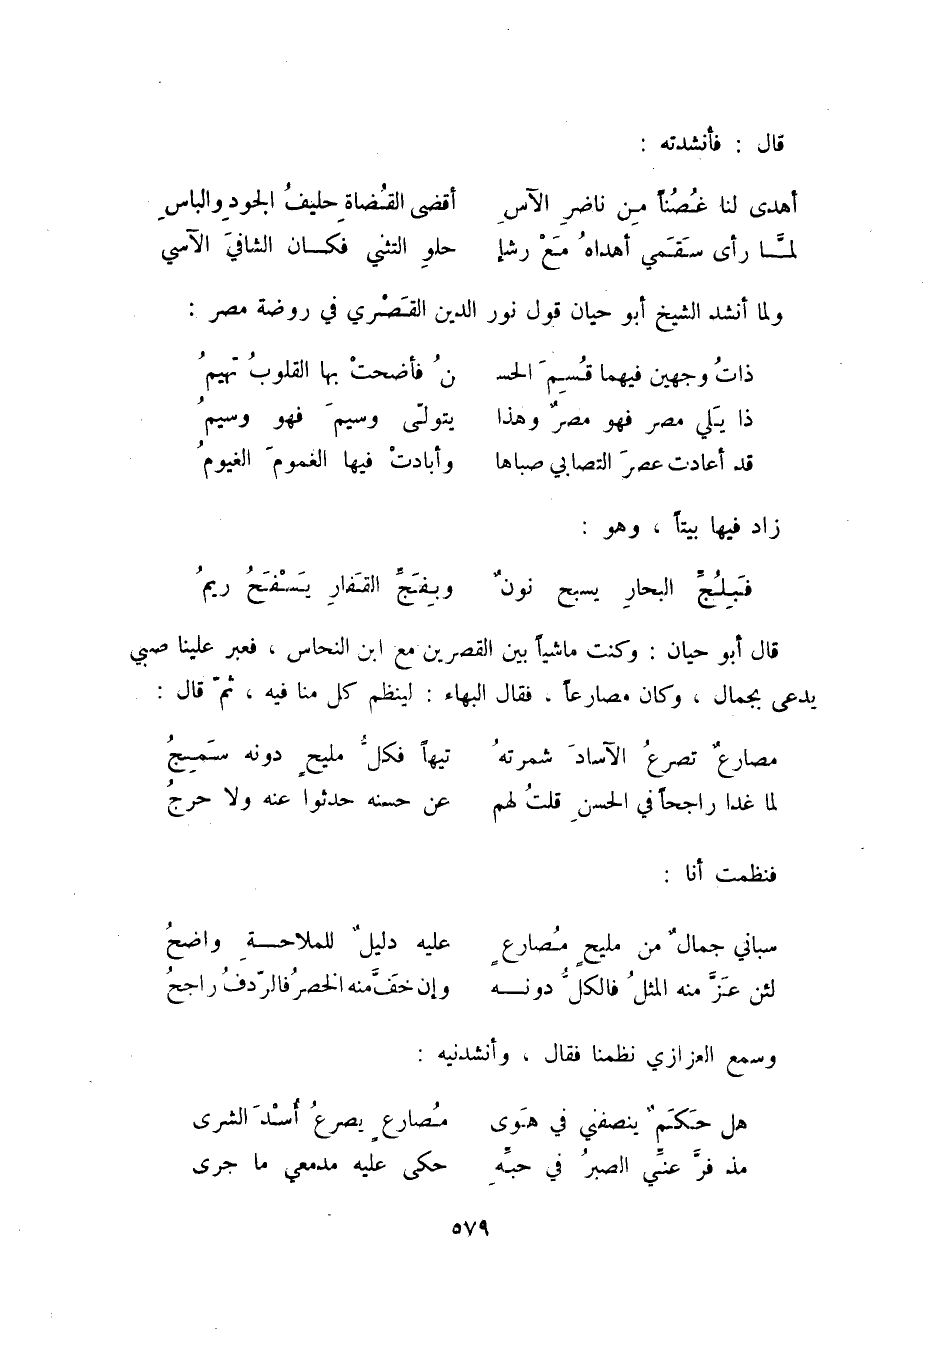 قال : فأنشدته :
أهدى لنا غُصُناً مِن ناضرِ الآسِ أقضى القُضاةِ حليفُ الجودِ والباسِ
لمَّا رأى سَقَمي أهداهُ مَعْ رشإ حلوِ التثني فكان الشافيَ الآسي
ولما أنشد الشيخ أبو حيان قول نور الدين القَصْري في روضة مصر :
ذاتُ وجهين فيهما قُسِمَ الحسـ نُ فأضحتْ بها القلوبُ تهيمُ
ذا يَلي مصر فهو مصرٌ وهذا يتولّى وسيمَ فهو وسيمُ
قد أعادت عصرَ التصابي صباها وأبادتْ فيها الغمومَ الغيومُ
زاد فيها بيتاً ، وهو :
فَبِلُجِّ البحارِ يسبح نونٌ وبِفَجِّ القَفارِ يَسْفَحُ ريمُ
قال أبو حيان : وكنت ماشياً بين القصرين مع ابن النحاس ، فعبر علينا صبي
يدعى بجمال ، وكان مصارعاً ، فقال البهاء : لينظم كل منا فيه ، ثمّ قال :
مصارعٌ تصرعُ الآسادَ شمرتهُ تيهاً فكلُّ مليحٍ دونه سَمِجُ
لما غدا راجحاً في الحسنِ قلتُ لهم عن حسنه حدثوا عنه ولا حرجُ
فنظمت أنا :
سباني جمالٌ من مليحٍ مُصارعٍ عليه دليلٌ للملاحةِ واضحُ
لئن عَزَّ منه المثلُ فالكلُّ دونه وإن خفَّ منه الخصرُ فالرّدفُ راجحُ
وسمع العزازي نظمنا فقال ، وأنشدنيه :
هل حَكَمٌ ينصفني في هَوى مُصارعٍ يصرعُ أُسْدَ الشرى
مذ فرَّ عنّي الصبرُ في حبّهِ حكى عليه مدمعي ما جرى
٥٧٩